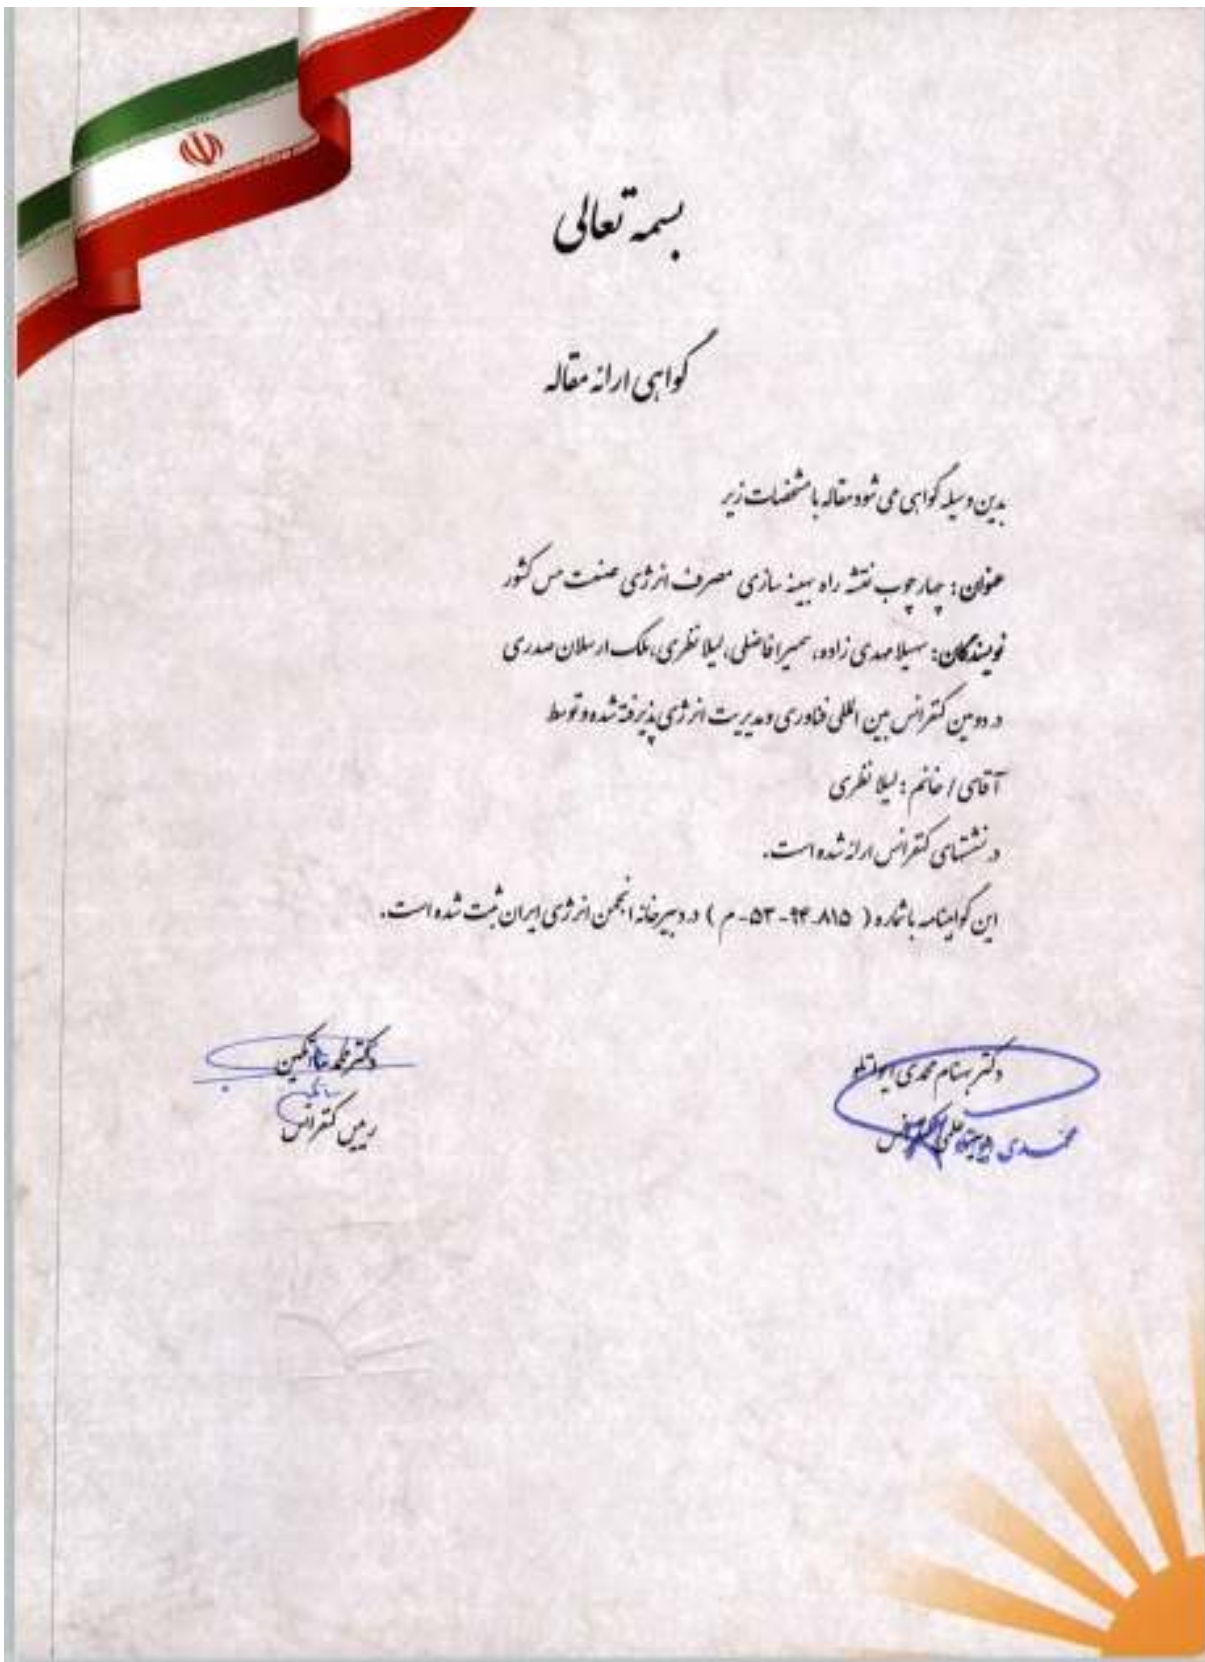 بسمه تعالی
گواهی ارائه مقاله
بدین وسیله گواهی می شود مقاله با مشخصات زیر
عنوان: چهارچوب نقشه راه بهینه سازی مصرف انرژی صنعت مس کشور
نویسندگان: سهیلا مهدی زاده، سمیرا فاضلی، لیلا نظری، ملک ارسلان صدری
در دومین کنفرانس بین المللی فناوری و مدیریت انرژی پذیرفته شده و توسط
آقای / خانم: لیلا نظری
در نشستهای کنفرانس ارائه شده است.
این گواهینامه با شماره ( ۸۱۵-۹۴-۵۳-م ) در دبیرخانه انجمن انرژی ایران ثبت شده است.
دکتر بهنام محمدی ایواتلو
دکتر
رییس کنفرانس